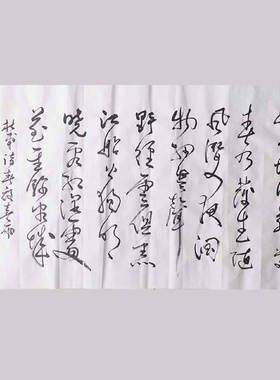 春乃發生随
風潛入夜潤
物細無聲
野徑雲俱黑
江船火獨明
曉看紅濕處
花重錦官城
杜甫詩春夜喜雨